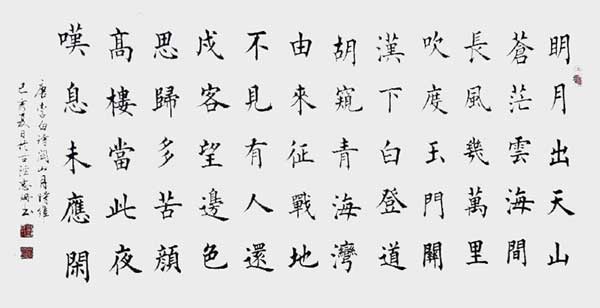 明月出天山
蒼茫雲海間
長風幾萬里
吹度玉門關
漢下白登道
胡窺青海灣
由來征戰地
不見有人還
戍客望邊色
思歸多苦顔
髙樓當此夜
嘆息未應閑
唐李白詩關山月
己亥夏日於